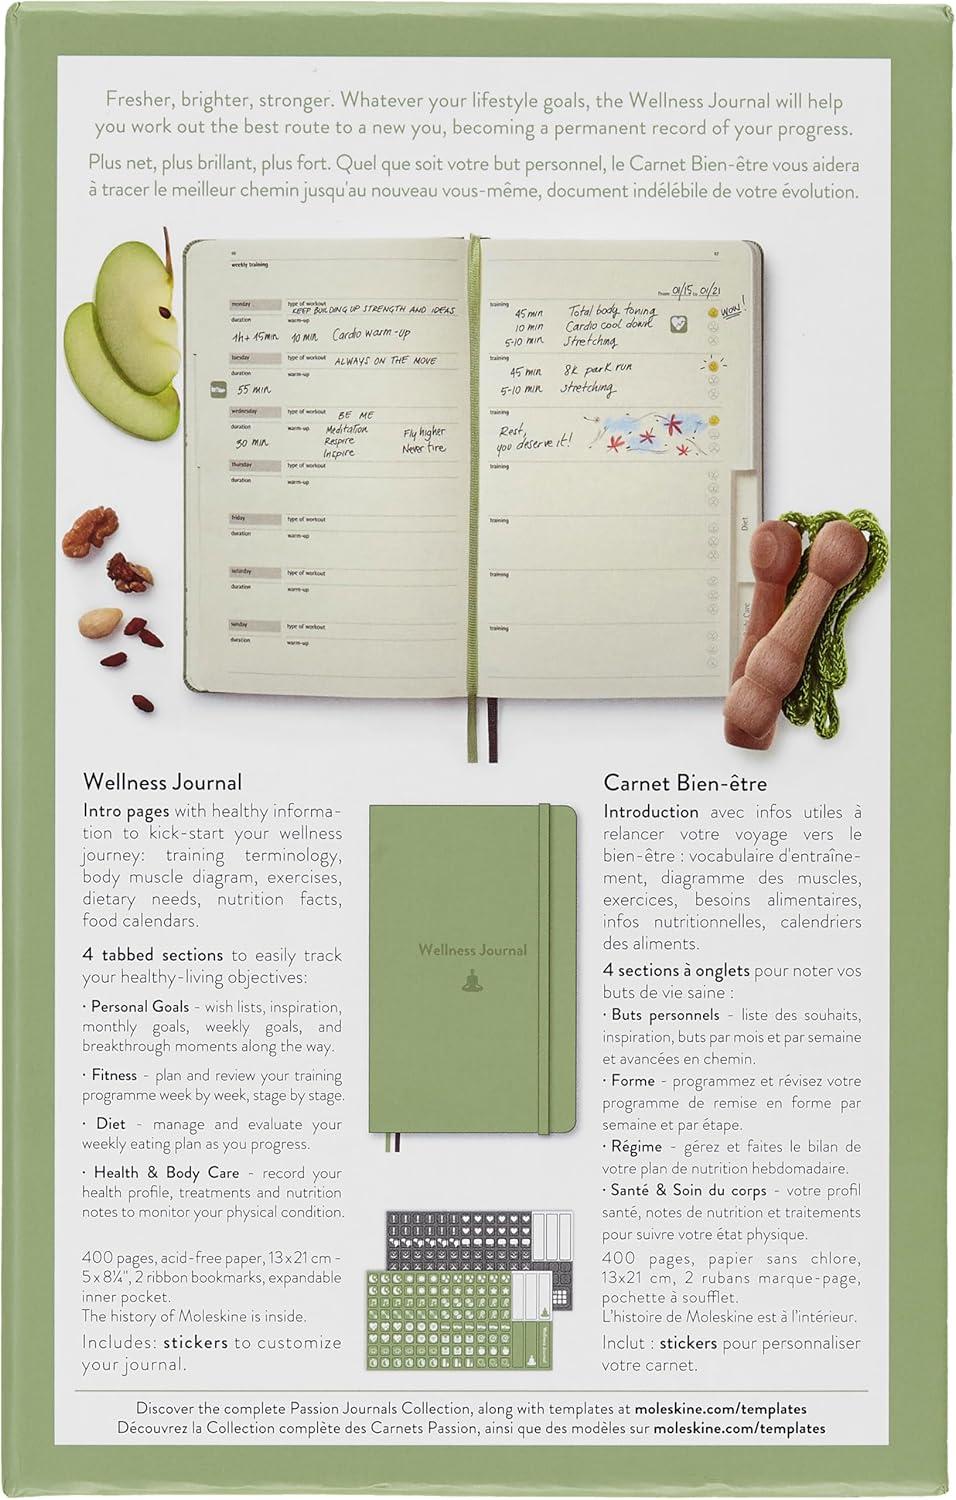 Fresher, brighter, stronger. Whatever your lifestyle goals, the Wellness Journal will help
you work out the best route to a new you, becoming a permanent record of your progress.
Plus net, plus brillant, plus fort. Quel que soit votre but personnel, le Carnet Bien-être vous aidera
à tracer le meilleur chemin jusqu'au nouveau vous-même, document indélébile de votre évolution.
weekly training
monday type of workout KEEP BUILDING UP STRENGTH AND IDEAS
duration warm-up
1h+ 15min 10 min Cardio warm-up
tuesday type of workout ALWAYS ON THE MOVE
duration warm-up
55 min
wednesday type of workout BE ME
duration warm-up Meditation Fly higher
30 min Respire Never tire
Inspire
thursday type of workout
duration warm-up
friday type of workout
duration warm-up
saturday type of workout
duration warm-up
sunday type of workout
duration warm-up
57
from 01/15 to 01/21
training 45 min Total body toning WOW!
10 min Cardio cool down
5-10 min Stretching
training
45 min 8k park run
5-10 min stretching
training
Rest,
you deserve it!
training
training
training
training
Diet
Care
Wellness Journal
Intro pages with healthy informa-
tion to kick-start your wellness
journey: training terminology,
body muscle diagram, exercises,
dietary needs, nutrition facts,
food calendars.
4 tabbed sections to easily track
your healthy-living objectives:
· Personal Goals - wish lists, inspiration,
monthly goals, weekly goals, and
breakthrough moments along the way.
· Fitness - plan and review your training
programme week by week, stage by stage.
· Diet - manage and evaluate your
weekly eating plan as you progress.
· Health & Body Care - record your
health profile, treatments and nutrition
notes to monitor your physical condition.
400 pages, acid-free paper, 13x21 cm -
5x8¼", 2 ribbon bookmarks, expandable
inner pocket.
The history of Moleskine is inside.
Includes: stickers to customize
your journal.
Wellness Journal
Wellness Journal
Carnet Bien-être
Introduction avec infos utiles à
relancer votre voyage vers le
bien-être : vocabulaire d'entraîne-
ment, diagramme des muscles,
exercices, besoins alimentaires,
infos nutritionnelles, calendriers
des aliments.
4 sections à onglets pour noter vos
buts de vie saine :
· Buts personnels - liste des souhaits,
inspiration, buts par mois et par semaine
et avancées en chemin.
· Forme - programmez et révisez votre
programme de remise en forme par
semaine et par étape.
· Régime - gérez et faites le bilan de
votre plan de nutrition hebdomadaire.
· Santé & Soin du corps - votre profil
santé, notes de nutrition et traitements
pour suivre votre état physique.
400 pages, papier sans chlore,
13x21 cm, 2 rubans marque-page,
pochette à soufflet.
L'histoire de Moleskine est à l'intérieur.
Inclut : stickers pour personnaliser
votre carnet.
Discover the complete Passion Journals Collection, along with templates at moleskine.com/templates
Découvrez la Collection complète des Carnets Passion, ainsi que des modèles sur moleskine.com/templates